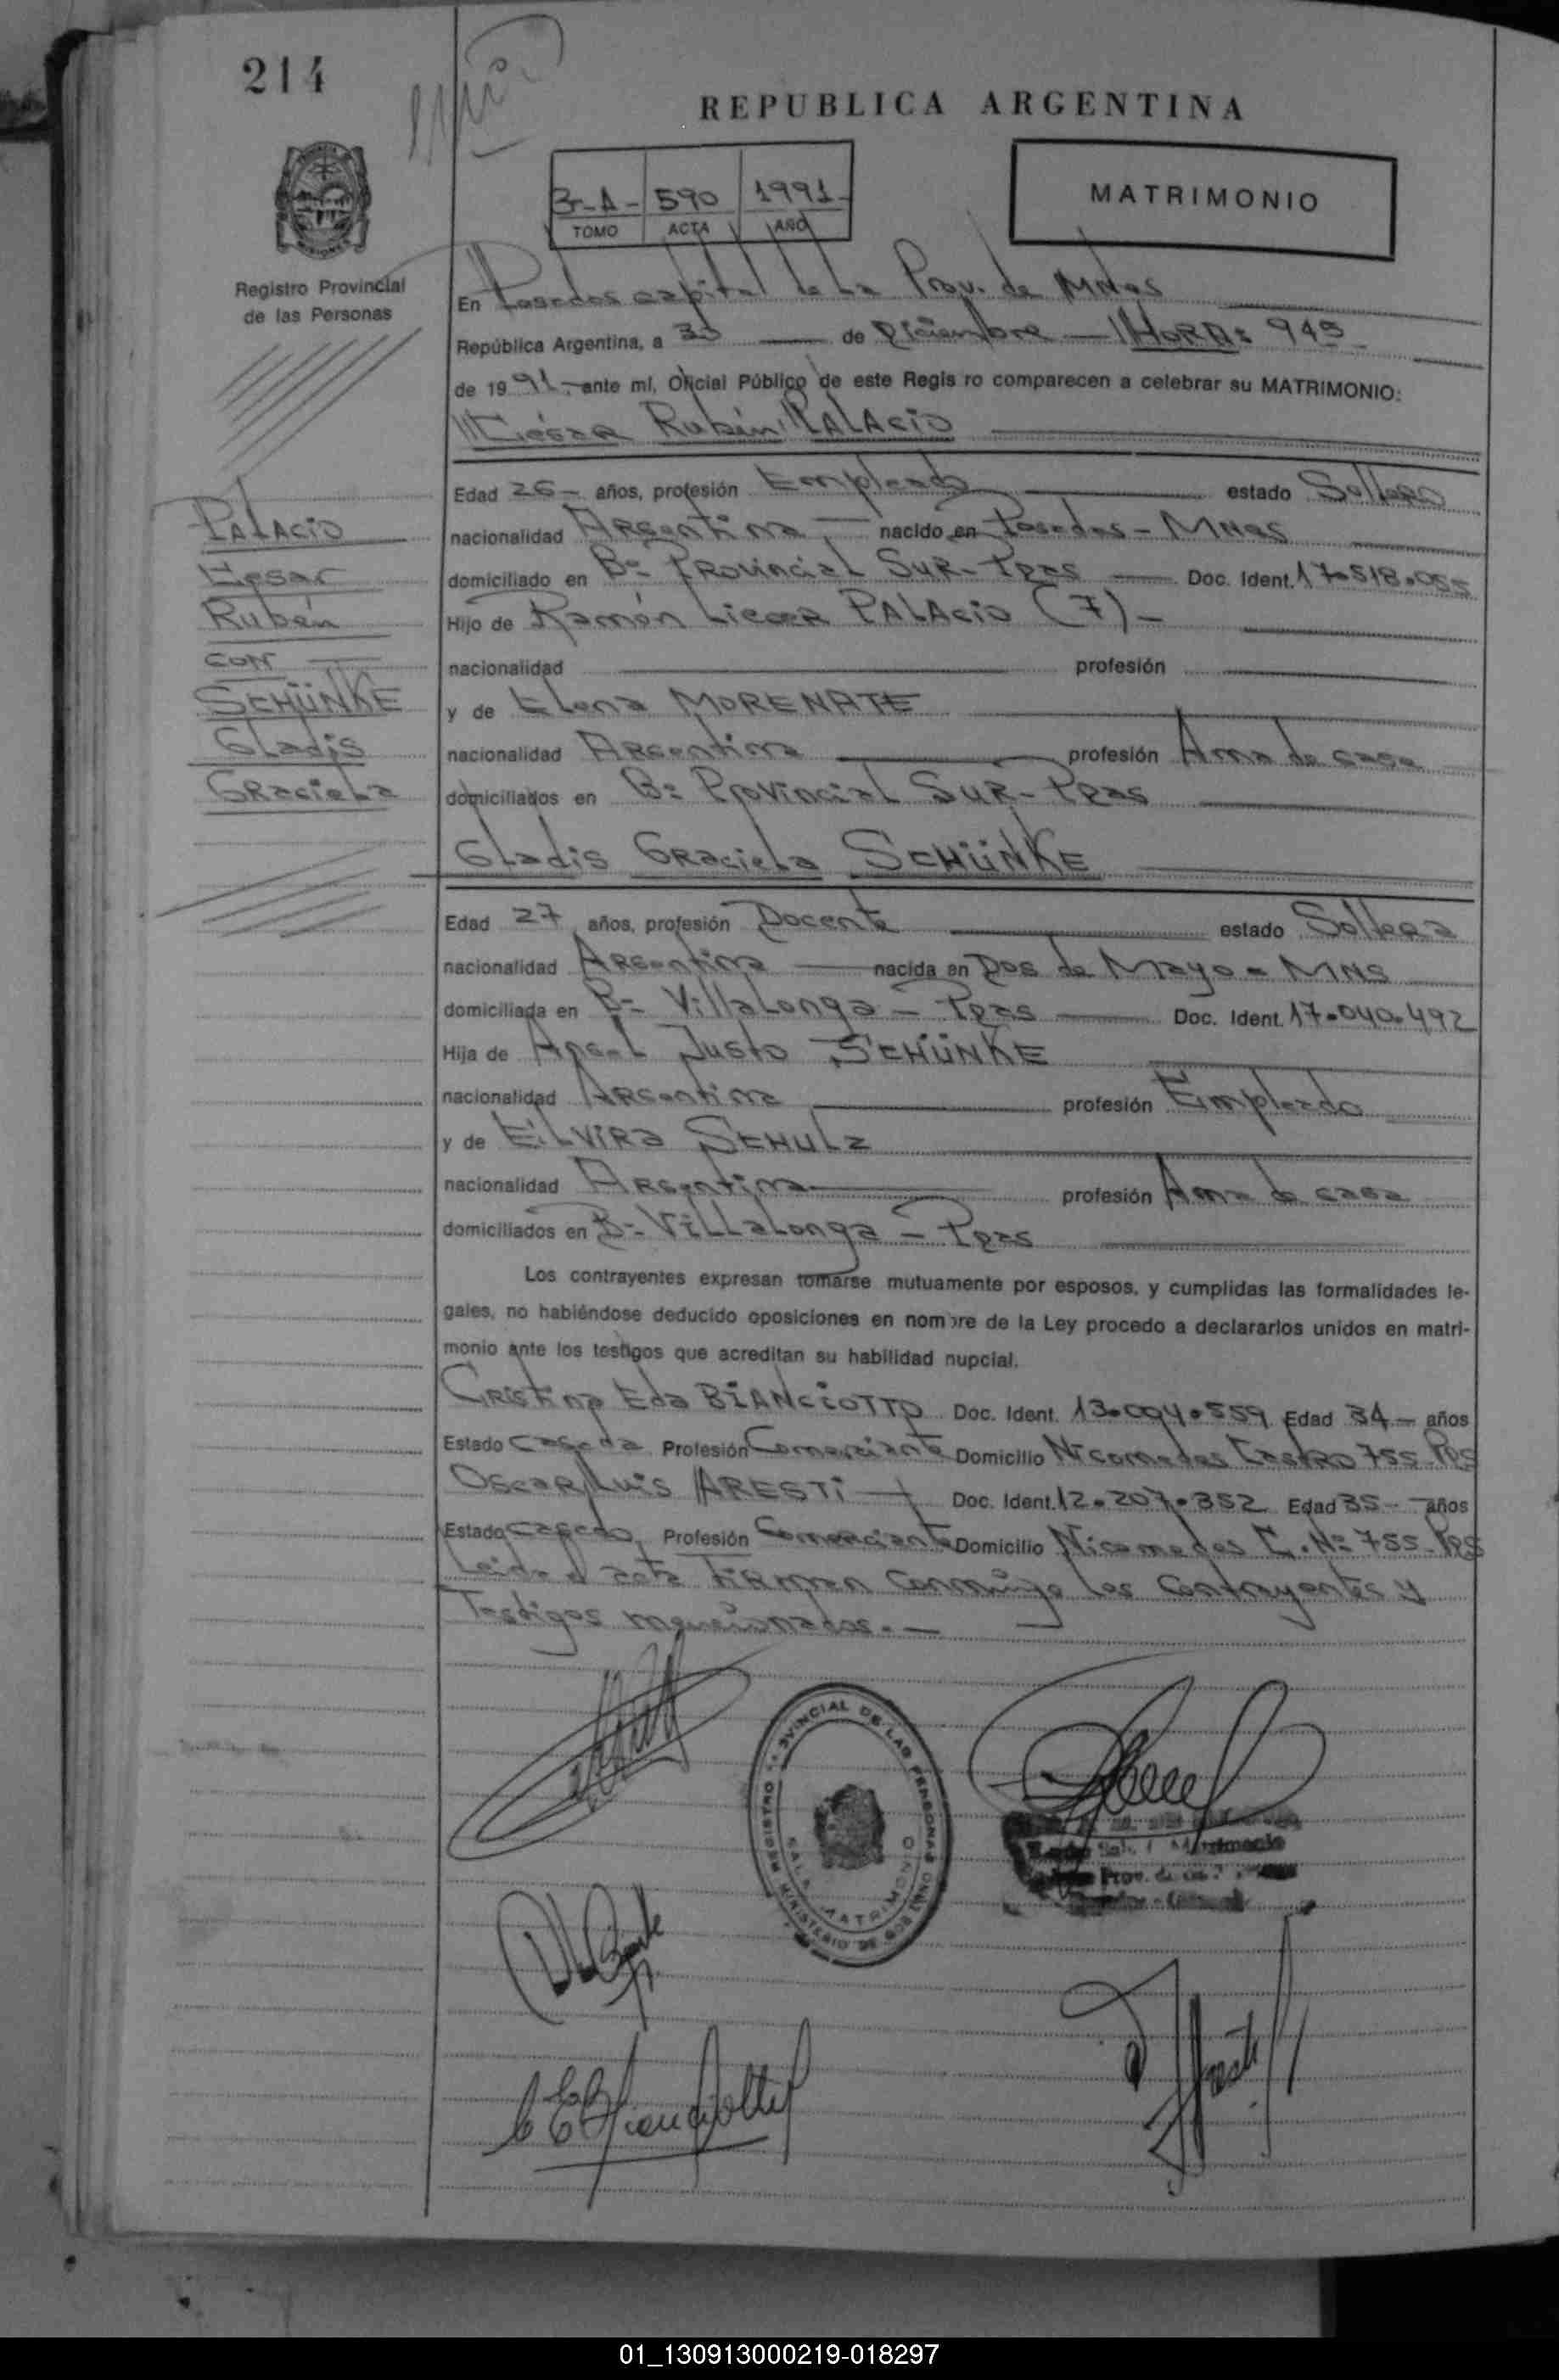 214
REPUBLICA ARGENTINA
3-A- 590 1991-
TOMO ACTA AÑO
MATRIMONIO
Registro Provincial
de las Personas
En Posadas capital de La Prov. de MNes
República Argentina, a 30 de Diciembre HORA: 945
de 1991, ante mí, Oficial Público de este Regis ro comparecen a celebrar su MATRIMONIO:
César Rubén PALACIO
Edad 26- años, profesión Empleado estado Soltero
nacionalidad Argentina nacido en Posadas - MNes
domiciliado en Bº Provincial Sur - Pdas Doc. Ident. 17.518.055
Hijo de Ramón PALACIO
nacionalidad profesión
y de Elena MORENATE
nacionalidad Argentina profesión Ama de casa
domiciliados en Bº Provincial Sur - Pdas
PALACIO
Cesar
Rubén
con
SCHÜNKE
Gladis
Graciela
Gladis Graciela SCHÜNKE
Edad 27 años, profesión Docente estado Soltera
nacionalidad Argentina nacida en Dos de Mayo - MNS
domiciliada en Bº Villalonga - Pdas Doc. Ident. 17.040.492
Hija de Angel Justo SCHÜNKE
nacionalidad Argentina profesión Empleado
y de Elvira SCHULZ
nacionalidad Argentina profesión Ama de casa
domiciliados en Bº Villalonga - Pdas
Los contrayentes expresan tomarse mutuamente por esposos, y cumplidas las formalidades le-
gales, no habiéndose deducido oposiciones en nombre de la Ley procedo a declararlos unidos en matri-
monio ante los testigos que acreditan su habilidad nupcial.
Cristina Eda BIANCIOTTO Doc. Ident. 13.094.559 Edad 34- años
Estado casada Profesión Comerciante Domicilio Nicomedes Castro 755-Pds
Oscar Luis ARESTI Doc. Ident. 12.207.352 Edad 35- años
Estado casado Profesión Comerciante Domicilio Nicomedes C. Nº 755-Pds
Leida el acta firman conmigo los contrayentes y
Testigos mencionados.-
REGISTRO PROVINCIAL DE LAS PERSONAS
SALA MATRIMONIO
MINISTERIO DE GOBIERNO
01_130913000219-018297